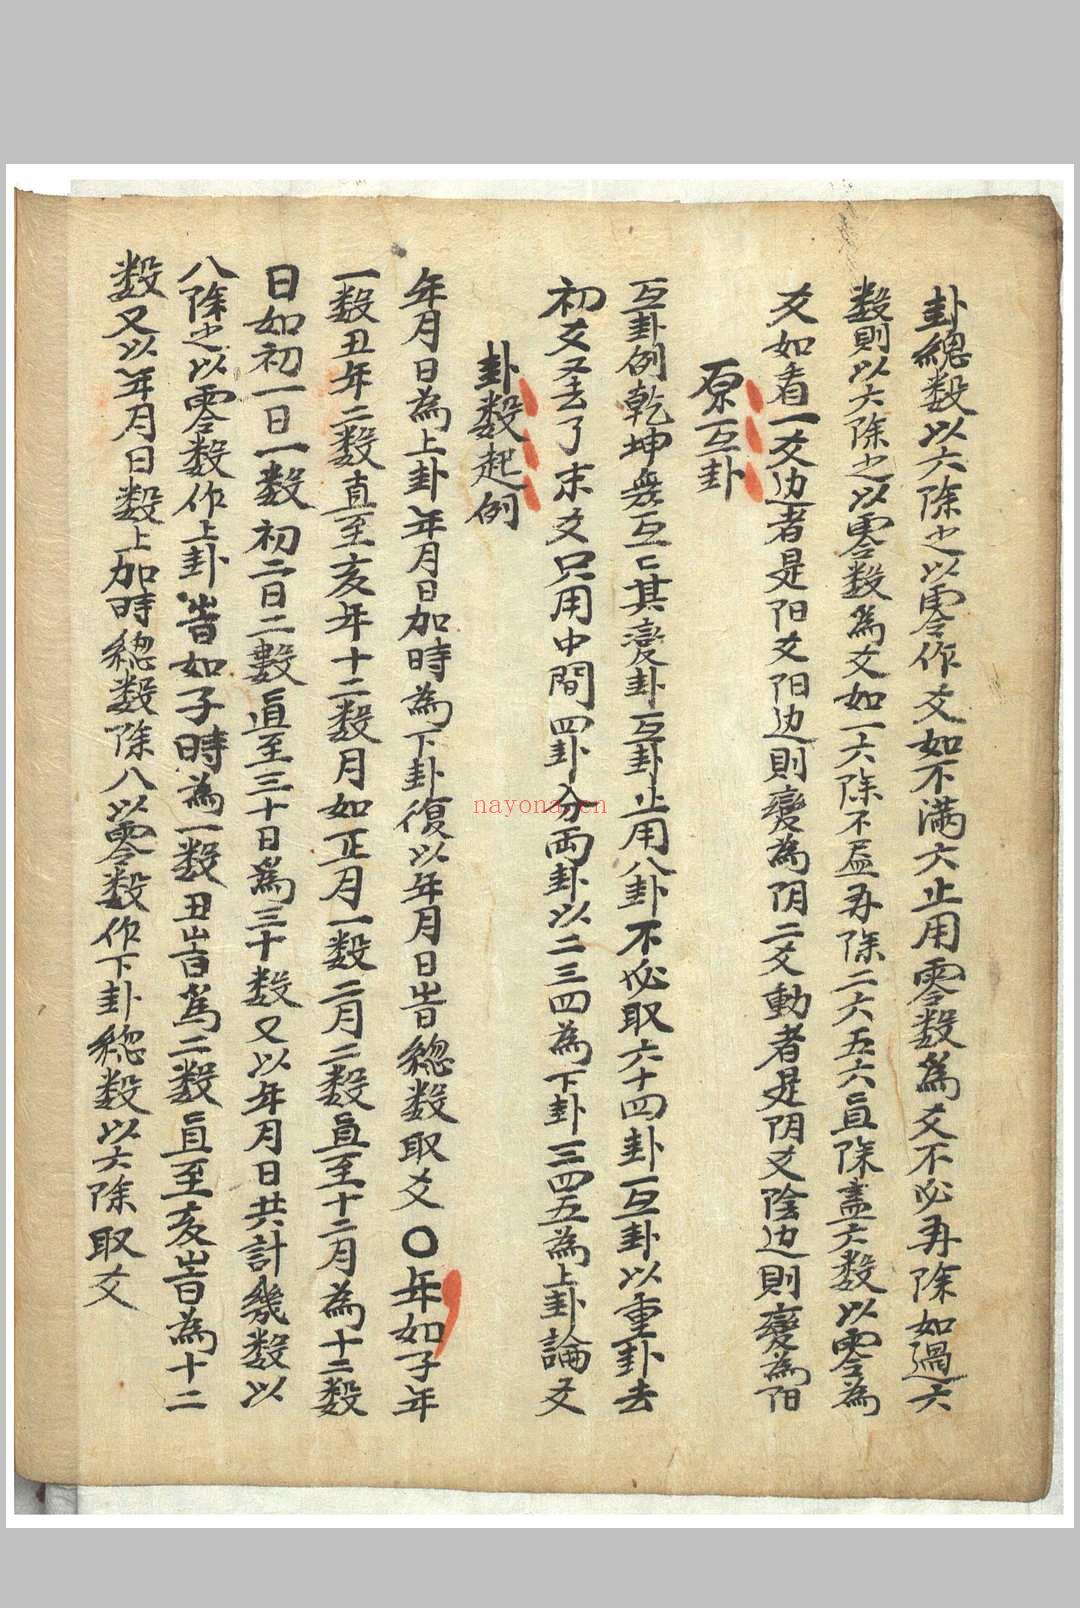 卦緫数以六除之以零作爻如不滿六止用零数為爻不必再除如過六
数則以六除之以零数為爻如一六除不尽再除二六五六直除盡六数以零為
爻如看一爻边者是阳爻阳边則變為阴二爻動者是阴爻陰边則變為阳
原互卦
互卦例乾坤無互匕其變卦互卦止用八卦不必取六十四卦互卦以重卦去
初爻又去了末爻只用中間四卦分両卦以二三四為下卦三四五為上卦論爻
卦数起例
年月日為上卦年月日加時為下卦復以年月日旹緫数取爻〇年如子年
一数丑年二数直至亥年十二数月如正月一数二月二数直至十二月為十二数
日如初一日一数初二日二數直至三十日為三十数又以年月日共計幾数以
八除之以零数作上卦旹如子時為一数丑旹為二数直至亥旹為十二
数又以年月日数上加時緫数除八以零数作下卦緫数以六除取爻
nayona.cn